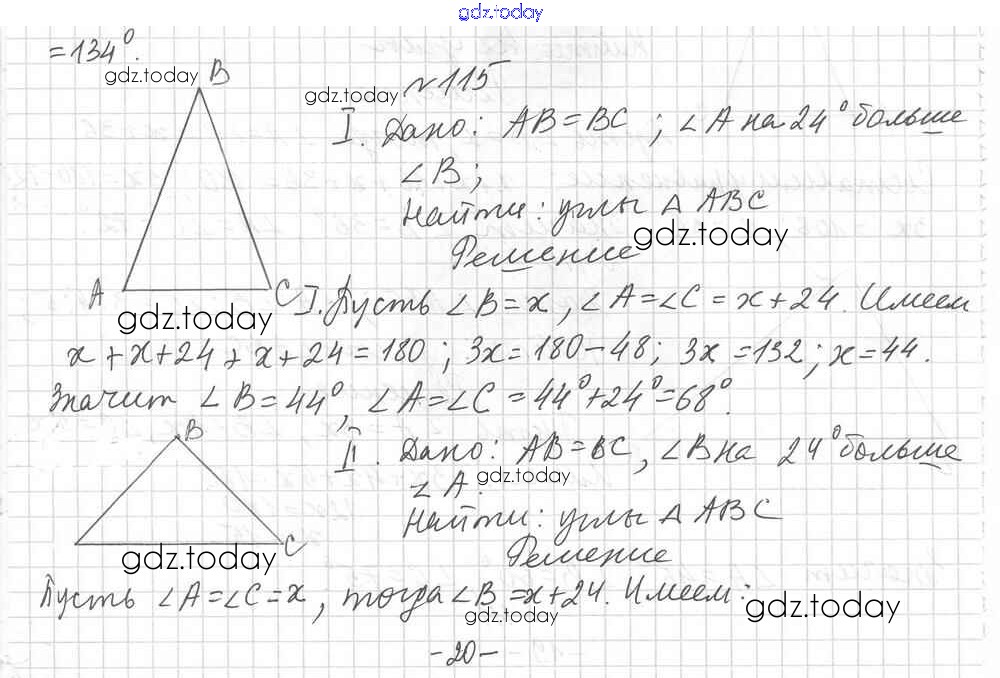 gdz.today
=134°.
gdz.today
B
gdz.today
№115
I. Дано: AB=BC ; ∠A на 24° больше
∠B;
Найти: углы △ ABC
gdz.today
Решение
A
C
I. Пусть ∠B=x, ∠A=∠C=x+24. Имеем
gdz.today
x+x+24+x+24=180; 3x=180-48; 3x=132; x=44.
Значит ∠B=44°, ∠A=∠C=44°+24°=68°.
B
II. Дано: AB=BC, ∠B на 24° больше
∠A.
gdz.today
Найти: углы △ ABC
C
gdz.today
Решение
Пусть ∠A=∠C=x, тогда ∠B=x+24. Имеем:
gdz.today
gdz.today
-20-